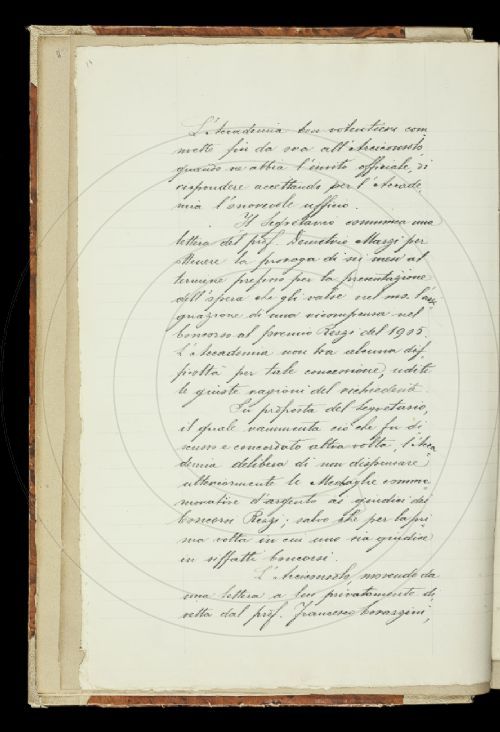 L'Accademia ben volentieri com
mette fin da ora all'Arciconsolo
quando ne abbia l'invito officiale, di
rispondere accettando per l'Accade,
mia l'onorevole ufficio.
Il Segretario comunica una
lettera del prof. Demetrio Marzi per
ottenere la proroga di sei mesi al
termine prefisso per la presentazione
dell'opera che gli valse nel ms. l'as
gnazione di una ricompensa nel
Concorso al premio Rezzi del 1905.
L'Accademia non ha alcuna dif,
ficoltà per tale concessione, udite
le giuste ragioni del richiedente.
Su proposta del Segretario,
il quale rammenta ciò che fu di
scusso e concordato altra volta, l'Acca
demia delibera di non dispensare
ulteriormente le Medaglie comme
morative d'argento ai giudici dei
Concorsi Rezzi; salvo che per la pri
ma volta in cui uno sia giudice
in siffatti Concorsi.
L'Arciconsolo, movendo da
una lettera a lui privatamente di,
retta dal prof. Francesco Corazzini,